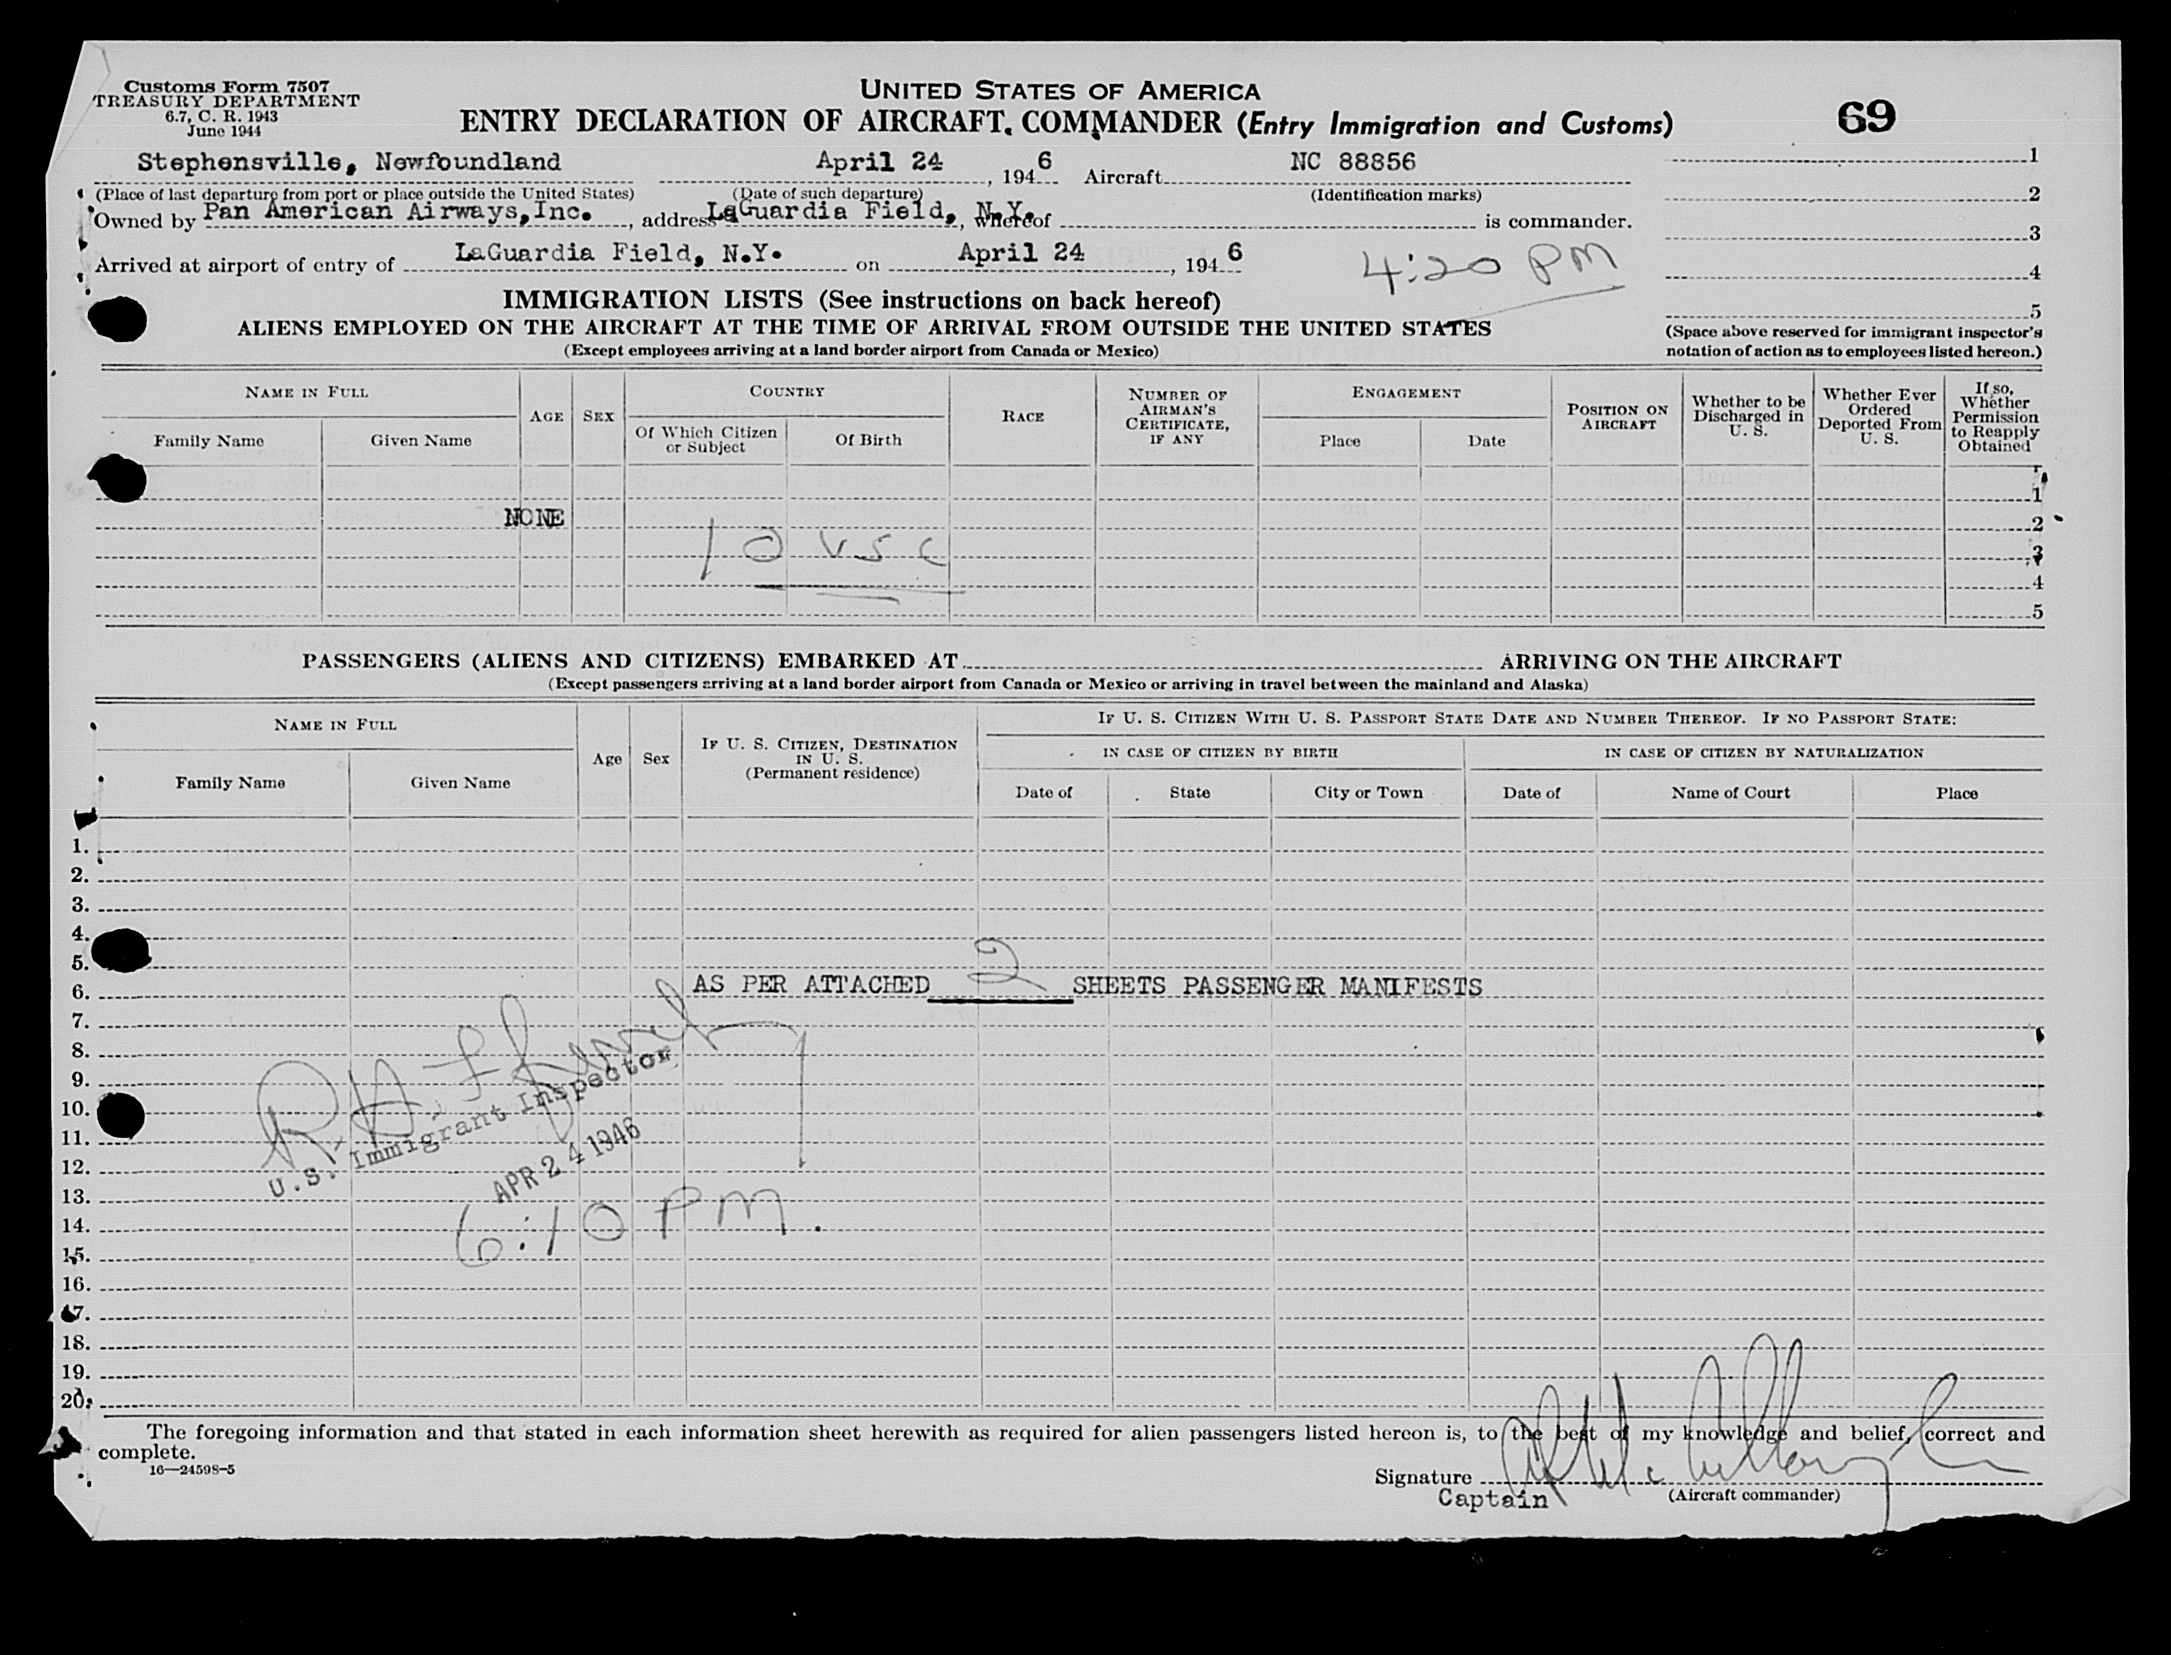 Customs Form 7507
TREASURY DEPARTMENT
6.7, C. R. 1943
June 1944
UNITED STATES OF AMERICA
ENTRY DECLARATION OF AIRCRAFT COMMANDER (Entry Immigration and Customs)
69
Stephensville, Newfoundland April 24, 1946 Aircraft NC 88856
(Place of last departure from port or place outside the United States) (Date of such departure) (Identification marks)
Owned by Pan American Airways, Inc., address LaGuardia Field, N.Y., whereof is commander.
Arrived at airport of entry of LaGuardia Field, N.Y. on April 24, 1946
4:20 PM
1
2
3
4
5
(Space above reserved for immigrant inspector's
notation of action as to employees listed hereon.)
IMMIGRATION LISTS (See instructions on back hereof)
ALIENS EMPLOYED ON THE AIRCRAFT AT THE TIME OF ARRIVAL FROM OUTSIDE THE UNITED STATES
(Except employees arriving at a land border airport from Canada or Mexico)
NAME IN FULL
Family Name Given Name
AGE SEX
COUNTRY
Of Which Citizen or Subject
Of Birth
RACE
NUMBER OF AIRMAN'S CERTIFICATE, IF ANY
ENGAGEMENT
Place Date
POSITION ON AIRCRAFT
Whether to be Discharged in U. S.
Whether Ever Ordered Deported From U. S.
If so, Whether Permission to Reapply Obtained
1
NONE 2
10 USC 3
4
5
PASSENGERS (ALIENS AND CITIZENS) EMBARKED AT ARRIVING ON THE AIRCRAFT
(Except passengers arriving at a land border airport from Canada or Mexico or arriving in travel between the mainland and Alaska)
NAME IN FULL
Family Name Given Name
Age Sex
IF U. S. CITIZEN, DESTINATION IN U. S.
(Permanent residence)
IF U. S. CITIZEN WITH U. S. PASSPORT STATE DATE AND NUMBER THEREOF. IF NO PASSPORT STATE:
IN CASE OF CITIZEN BY BIRTH IN CASE OF CITIZEN BY NATURALIZATION
Date of State City or Town Date of Name of Court Place
1.
2.
3.
4.
5.
6. AS PER ATTACHED 2 SHEETS PASSENGER MANIFESTS
7.
8.
9.
10.
11.
12.
13.
14.
15.
16.
17.
18.
19.
20.
U.S. Immigrant Inspector
APR 24 1946
6:10 PM.
The foregoing information and that stated in each information sheet herewith as required for alien passengers listed hereon is, to the best of my knowledge and belief, correct and
complete.
16—24598-5
Signature
Captain (Aircraft commander)